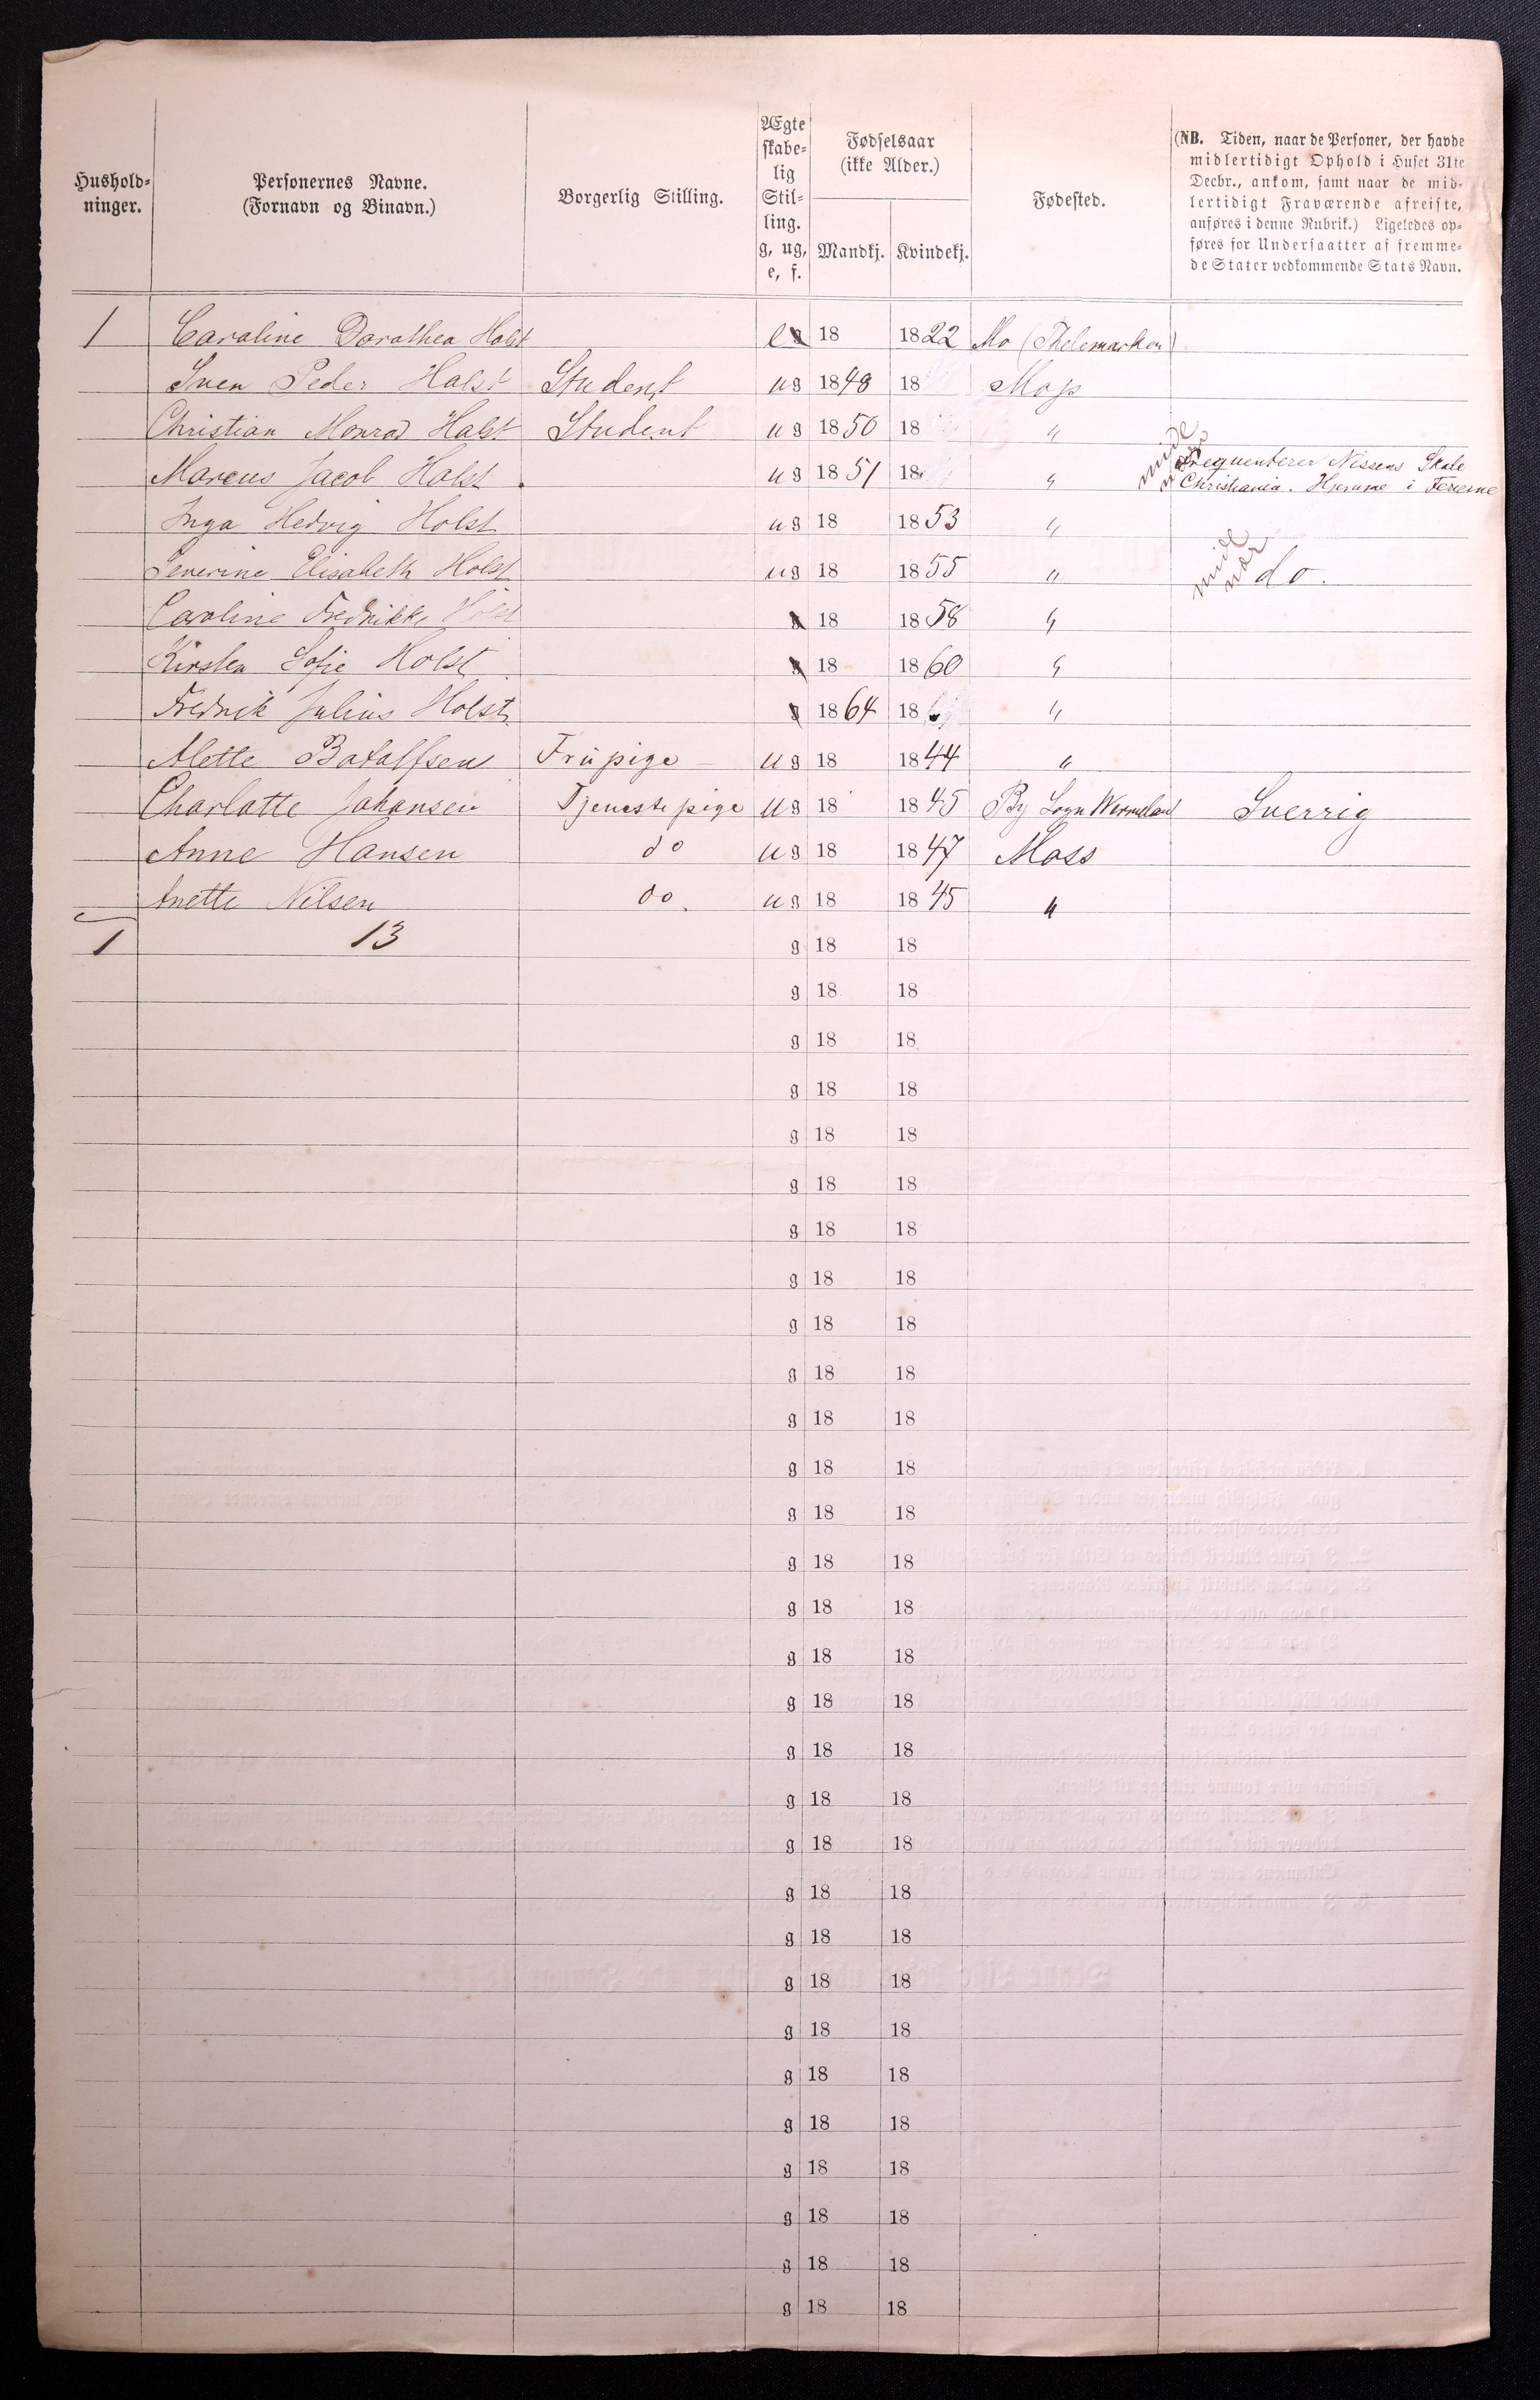 Hushold-
ninger.
Personernes Navne.
(Fornavn og Binavn.)
Borgerlig Stilling.
Ægte
skabe-
lig
Stil-
ling.
g, ug,
e, f.
Fødselsaar
(ikke Alder.)
Mandkj. Kvindekj.
Fødested.
(NB. Tiden, naar de Personer, der havde
midlertidigt Ophold i Huset 31te
Decbr., ankom, samt naar de mid-
lertidigt Fraværende afreiste,
anføres i denne Rubrik.) Ligeledes op-
føres for Undersaatter af fremme-
de Stater vedkommende Stats Navn.
1 Caroline Dorothea Holst e g 18 1822 Mo (Thelemarken)
Sven Peder Holst Student ug 1848 18 Moss
Christian Monrad Holst Student ug 1850 18 "
Marcus Jacob Holst ug 1851 18 " Frequenterer Nissens Skole
Christiania. Hjemme i Ferierne
Inga Hedvig Holst ug 18 1853 "
Severine Elisabeth Holst ug 18 1855 " do.
Caroline Fredrikke Holst g 18 1858 "
Kirsten Sofie Holst g 18 1860 "
Fredrik Julius Holst g 1864 18 "
Alette Botolfsen Früpige ug 18 1844 "
Charlotte Johansen Tjenestepige ug 18 1845 By Sogn Wermland Sverrig
Anne Hansen do ug 18 1847 Moss
Anette Nilsen do. ug 18 1845 "
1 13 g 18 18
g 18 18
g 18 18
g 18 18
g 18 18
g 18 18
g 18 18
g 18 18
g 18 18
g 18 18
g 18 18
g 18 18
g 18 18
g 18 18
g 18 18
g 18 18
g 18 18
g 18 18
g 18 18
g 18 18
g 18 18
g 18 18
g 18 18
g 18 18
g 18 18
g 18 18
g 18 18
g 18 18
g 18 18
g 18 18